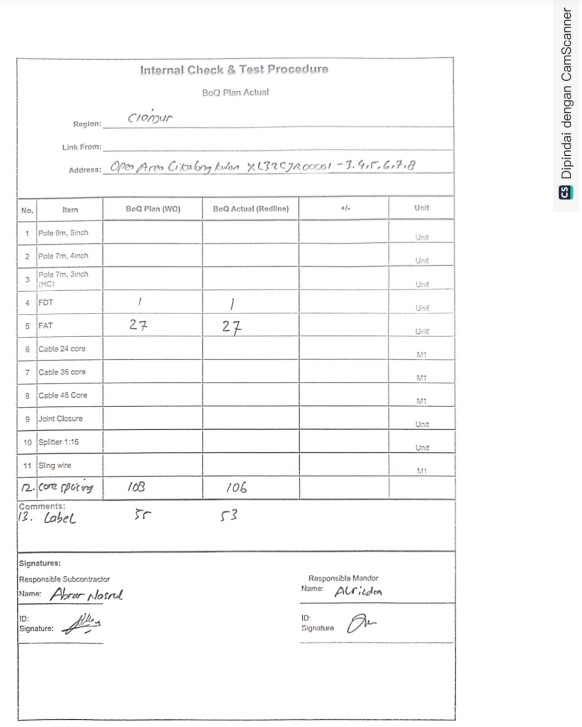 Internal Check & Test Procedure
BoQ Plan Actual
Region: Cianjur
Link From:
Address: Open Area Cikalong kulon XL32CJR00001 - 3.4,5,6,7,8
No. Item BoQ Plan (WO) BoQ Actual (Redline) +/- Unit
1 Pole 9m, 5inch Unit
2 Pole 7m, 4inch Unit
3 Pole 7m, 3inch (HC) Unit
4 FDT 1 1 Unit
5 FAT 27 27 Unit
6 Cable 24 core M1
7 Cable 36 core M1
8 Cable 48 Core M1
9 Joint Closure Unit
10 Spliter 1:16 Unit
11 Sling wire M1
12. core splicing 108 106
Comments:
13. Label 55 53
Signatures:
Responsible Subcontractor Responsible Mandor
Name: Abrar Name:
ID: ID:
Signature: Signature
CS Dipindai dengan CamScanner